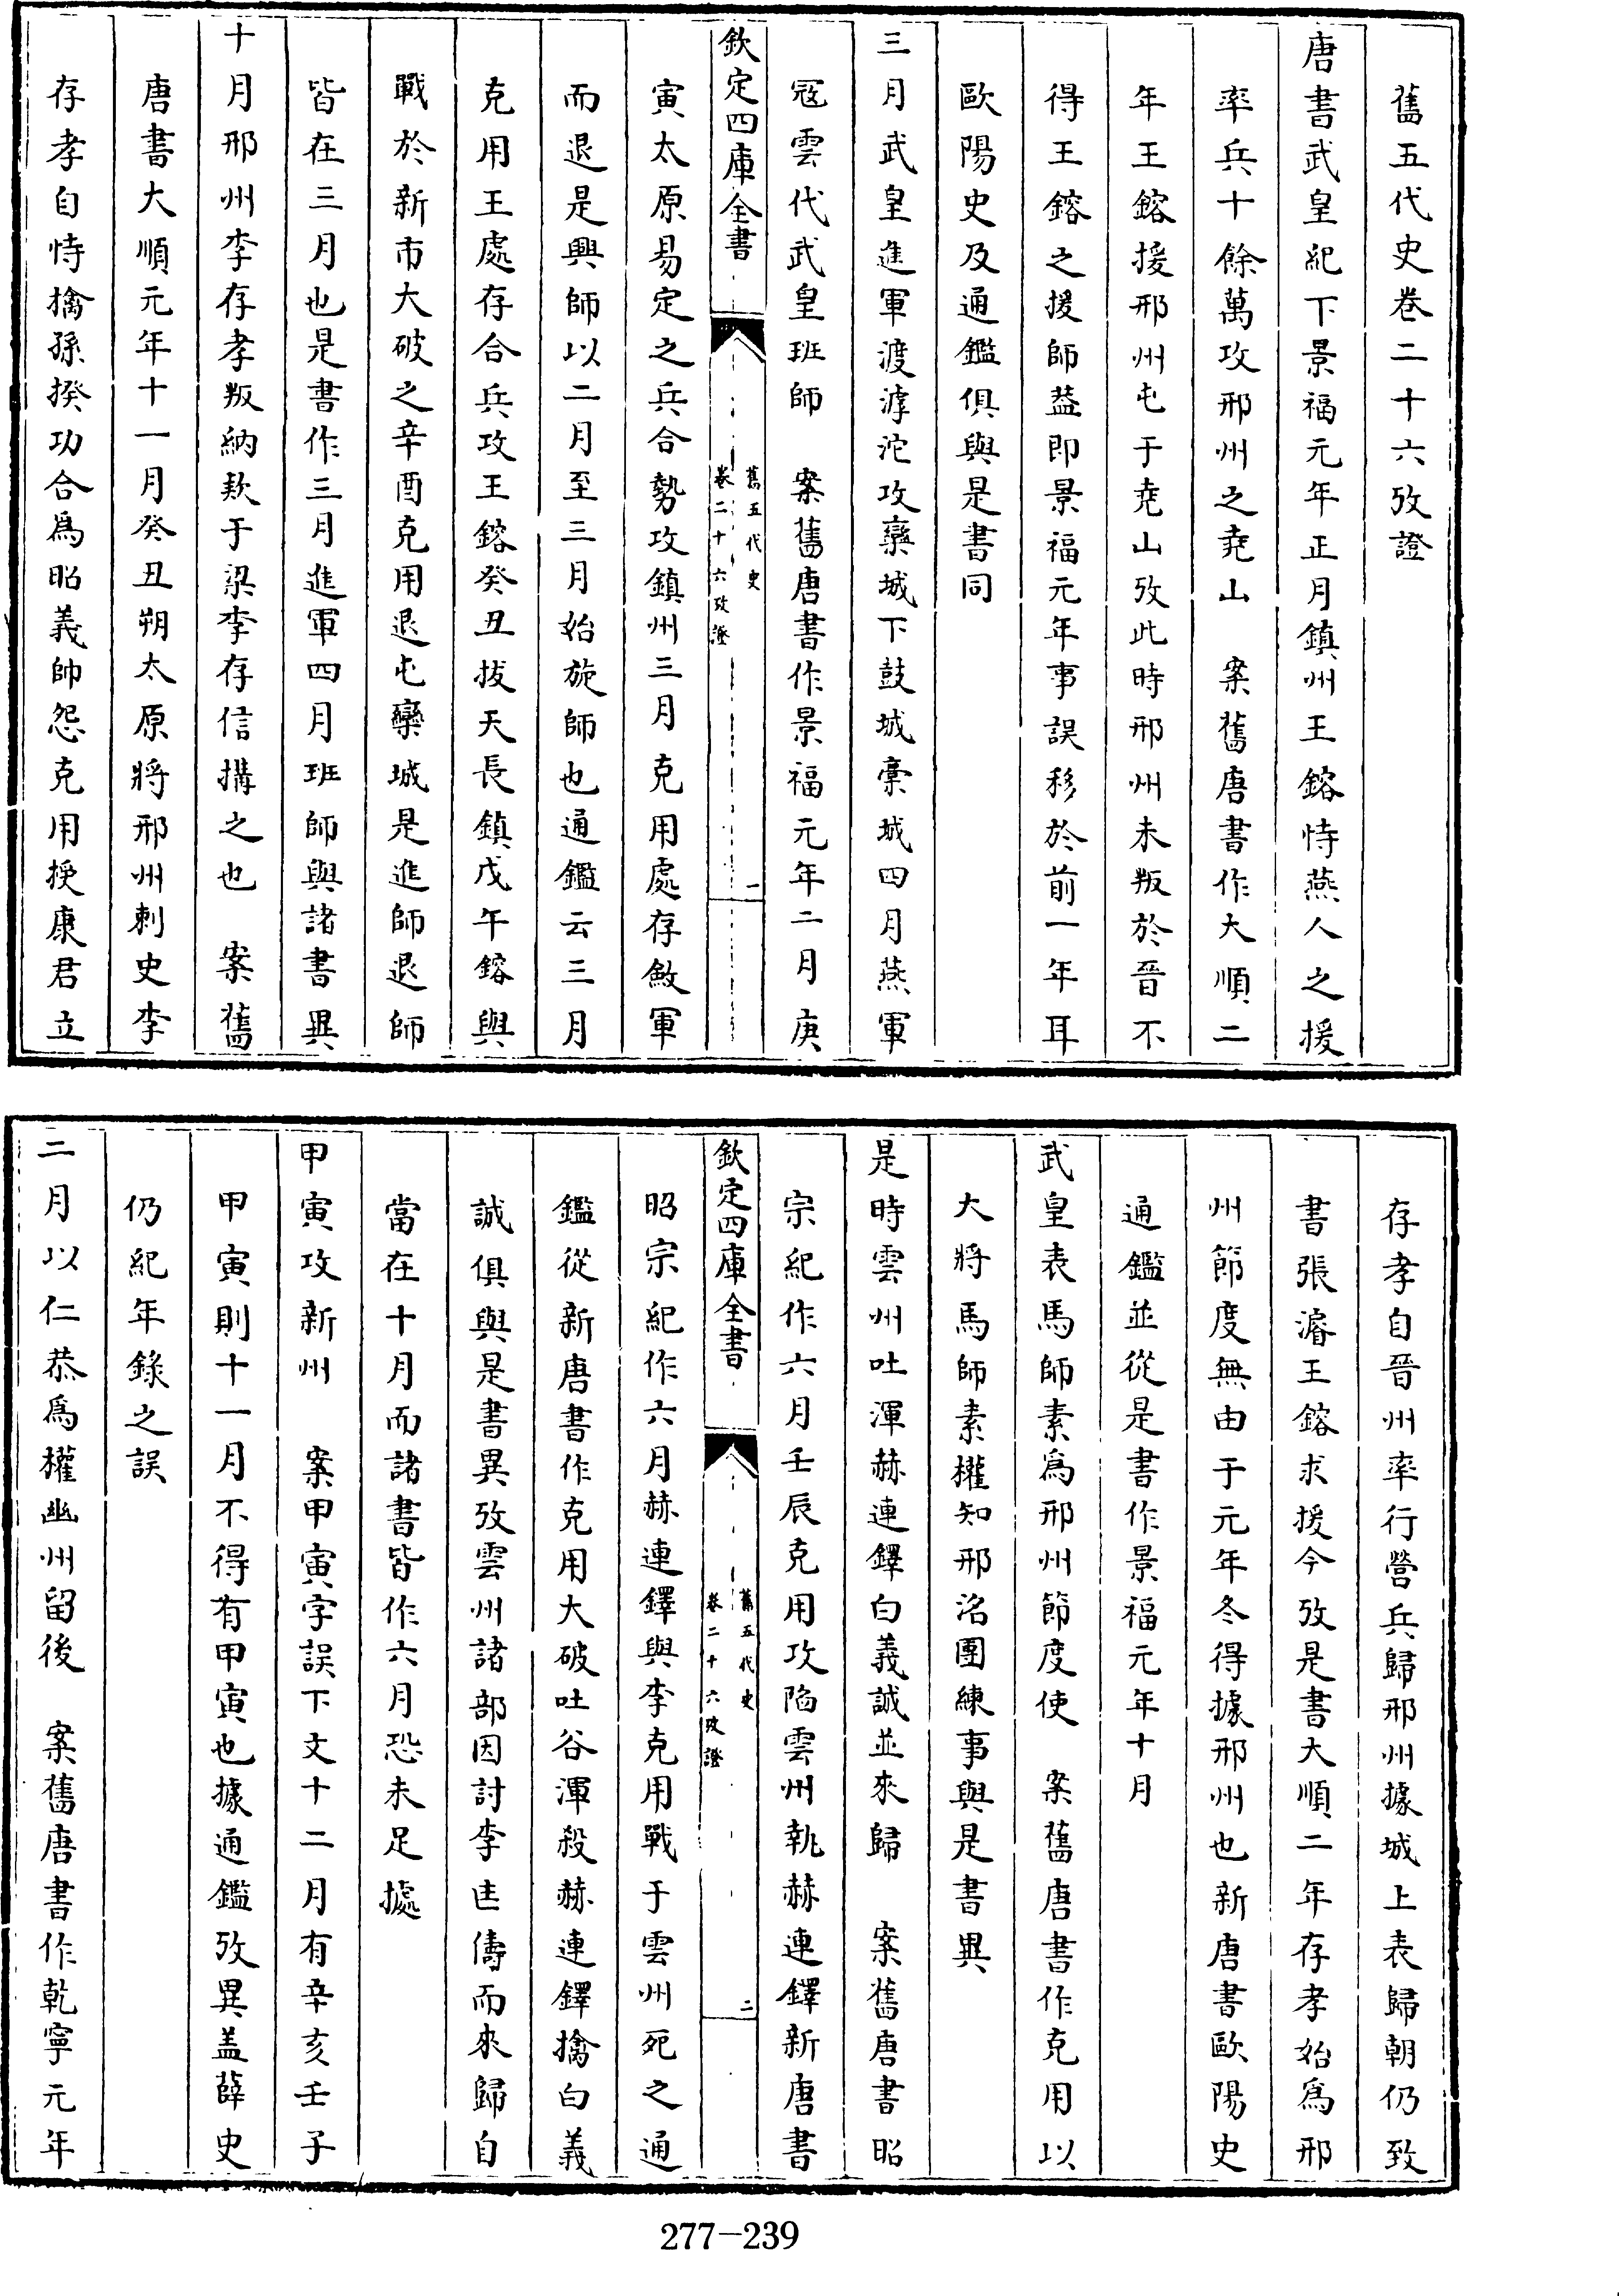 舊五代史卷二十六攷證
唐書武皇紀下景福元年正月鎮州王鎔恃燕人之援
率兵十餘萬攻邢州之堯山　案舊唐書作大順二
年王鎔援邢州屯于堯山攷此時邢州未叛於晉不
得王鎔之援師葢即景福元年事誤移於前一年耳
歐陽史及通鑑俱與是書同
三月武皇進軍渡滹沱攻欒城下鼓城藁城四月燕軍
冦雲代武皇班師　案舊唐書作景福元年二月庚
欽定四庫全書
舊五代史
卷二十六攷證
一
寅太原易定之兵合勢攻鎮州三月克用處存斂軍
而退是興師以二月至三月始旋師也通鑑云三月
克用王處存合兵攻王鎔癸丑拔天長鎮戊午鎔與
戰於新市大破之辛酉克用退屯欒城是進師退師
皆在三月也是書作三月進軍四月班師與諸書異
十月邢州李存孝叛納欵于梁李存信搆之也　案舊
唐書大順元年十一月癸丑朔太原將邢州刺史李
存孝自恃擒孫揆功合爲昭義帥怨克用授康君立
存孝自晉州率行營兵歸邢州據城上表歸朝仍致
書張濬王鎔求援今攷是書大順二年存孝始爲邢
州節度無由于元年冬得據邢州也新唐書歐陽史
通鑑並從是書作景福元年十月
武皇表馬師素爲邢州節度使　案舊唐書作克用以
大將馬師素權知邢洺團練事與是書異
是時雲州吐渾赫連鐸白義誠並來歸　案舊唐書昭
宗紀作六月壬辰克用攻陷雲州執赫連鐸新唐書
欽定四庫全書
舊五代史
卷二十六攷證
二
昭宗紀作六月赫連鐸與李克用戰于雲州死之通
鑑從新唐書作克用大破吐谷渾殺赫連鐸擒白義
誠俱與是書異攷雲州諸部因討李匡儔而來歸自
當在十月而諸書皆作六月恐未足據
甲寅攻新州　案甲寅字誤下文十二月有辛亥壬子
甲寅則十一月不得有甲寅也據通鑑攷異盖薛史
仍紀年錄之誤
二月以仁恭爲權幽州留後　案舊唐書作乾寧元年
277-239